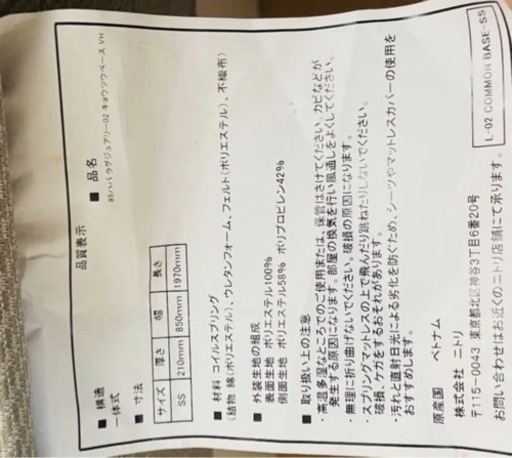 品質表示
■ 構造
一体式
■ 品名
85ハバ ラグジュアリー02 キョウツウベース VH
■ 寸法
サイズ 厚さ 幅 長さ
SS 210mm 850mm 1970mm
■ 材料 コイルスプリング
(詰物 綿(ポリエステル)、ウレタンフォーム、フェルト(ポリエステル)、不織布)
■ 外装生地の組成
表面生地 ポリエステル100%
側面生地 ポリエステル58% ポリプロピレン42%
■ 取り扱い上の注意
・高温多湿なところでのご使用または、保管はさけてください。カビなどが
発生する原因になります。部屋の換気を行い風通しをよくしてください。
・無理に折り曲げないでください。破損の原因になります。
・スプリングマットレスの上で飛んだり跳ねたりしないでください。
破損・ケガをするおそれがあります。
・汚れと直射日光による劣化を防ぐため、シーツやマットレスカバーの使用を
おすすめします。
原産国 ベトナム
株式会社 ニトリ
〒115-0043 東京都北区神谷3丁目6番20号
お問い合わせはお近くのニトリ店舗にて承ります。
L-02 COMMON BASE-SS